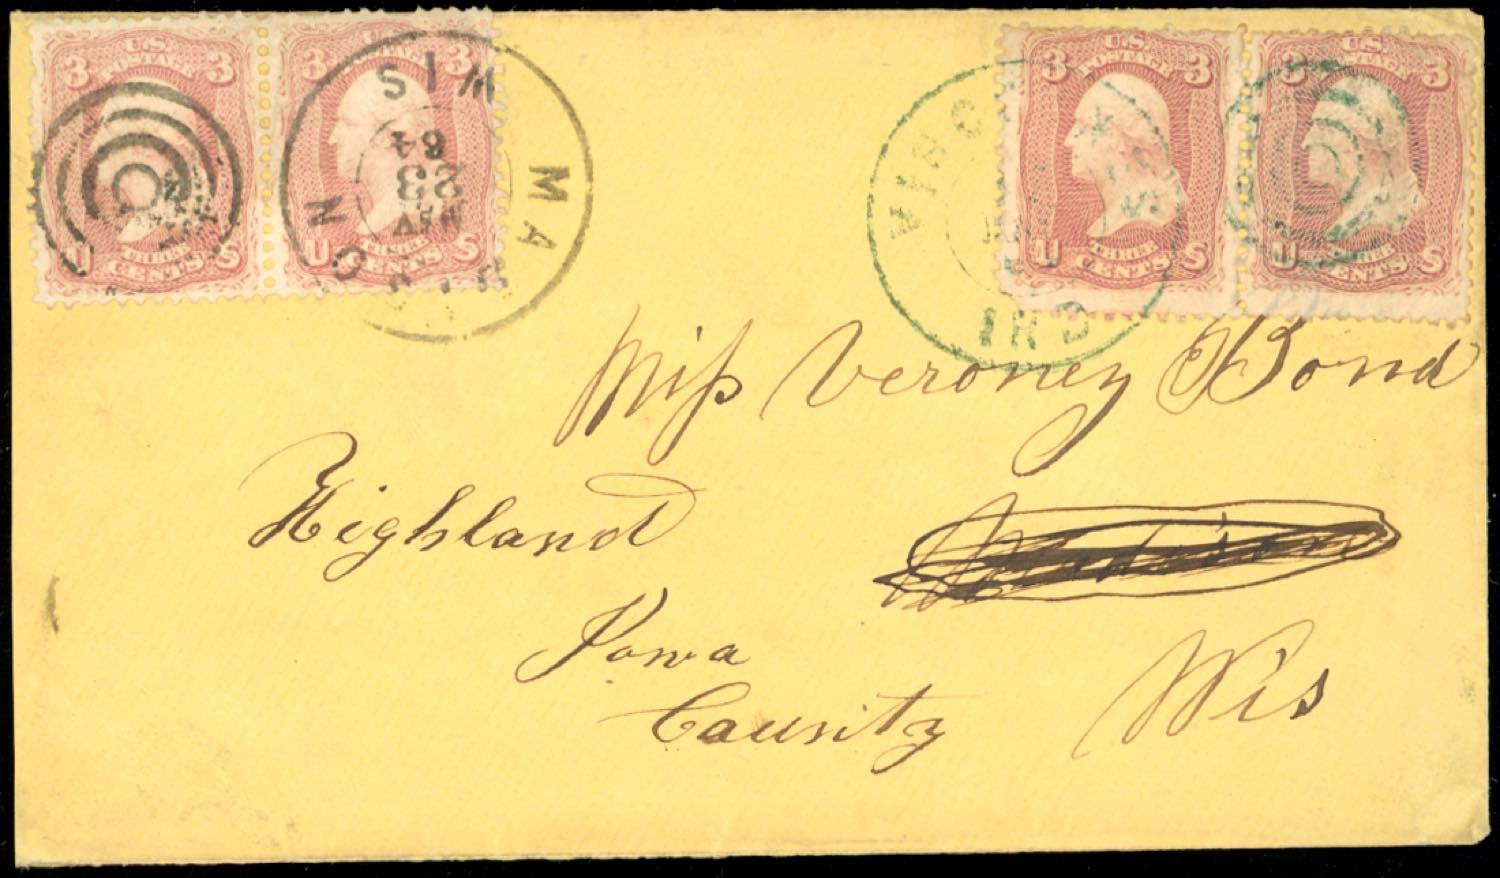 U.S. POSTAGE
3 3
U THREE CENTS S
U.S. POSTAGE
3 3
U THREE CENTS S
MA ON
WIS
MAY
23
64
U.S. POSTAGE
3 3
U THREE CENTS S
U.S. POSTAGE
3 3
U THREE CENTS S
IND
Miss Veroney Bond
Highland
Madison
Iowa
County
Wis